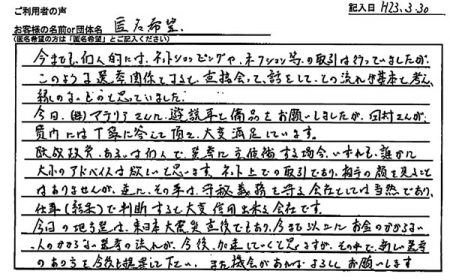 ご利用者の声
記入日 H23.3.30
お客様の名前or団体名 匿名希望
(匿名希望の方は「匿名希望」とご記入ください)
今までも、個人的には、ネットショッピングや、オークション等の取引は行っていましたが、
このような選挙関係とすると、直接会って、話をして、との流れが基本と考え、
縁のないものと思っていました。
今回、(株)マテリアさんに、遊説車と備品をお願いしましたが、田村さんが、
質問には丁寧に答えて頂き、大変満足しています。
既成政党、あるいは個人で、選挙に立候補する場合、いずれも、誰かに
大小のアドバイスは欲しいと思います。ネット上での取引であり、相手の顔を見ることは
はありませんが、逆に、その事は、守秘義務を守る会社としては当然であり、
仕事(結果)で判断すると大変信用出来る会社です。
今回の地方選は、東日本大震災直後でもあり、今まで以上にお金のかからない
人のかからない選挙の流れが、今後、加速していくと思いますが、その中で、新しい選挙
のあり方を今後も提案して下さい。また機会があればよろしくお願いします